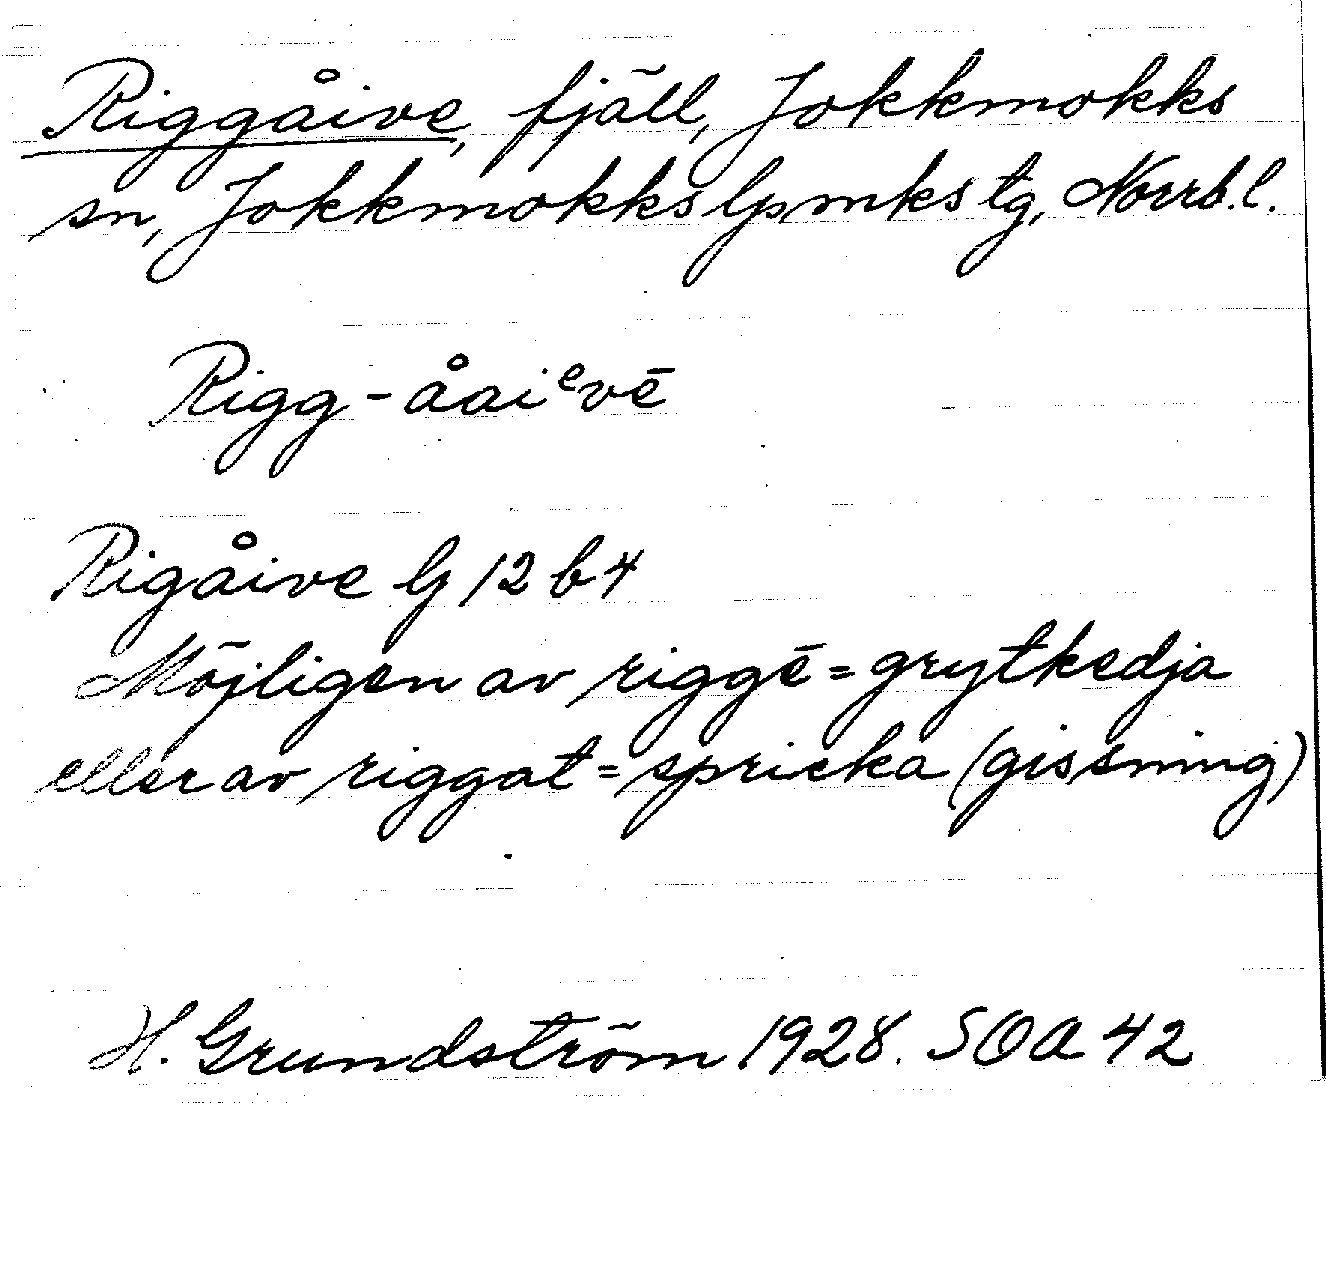 Riggåive, fjäll, Jokkmokks
sn, Jokkmokks lpmks tg, Norrb. l.
Rigg-åaiᵉvē
Rigåive G 12 b 4
Möjligen av riggē = grytkedja
eller av riggat = spricka (gissning)
H. Grundström 1928. SOA 42